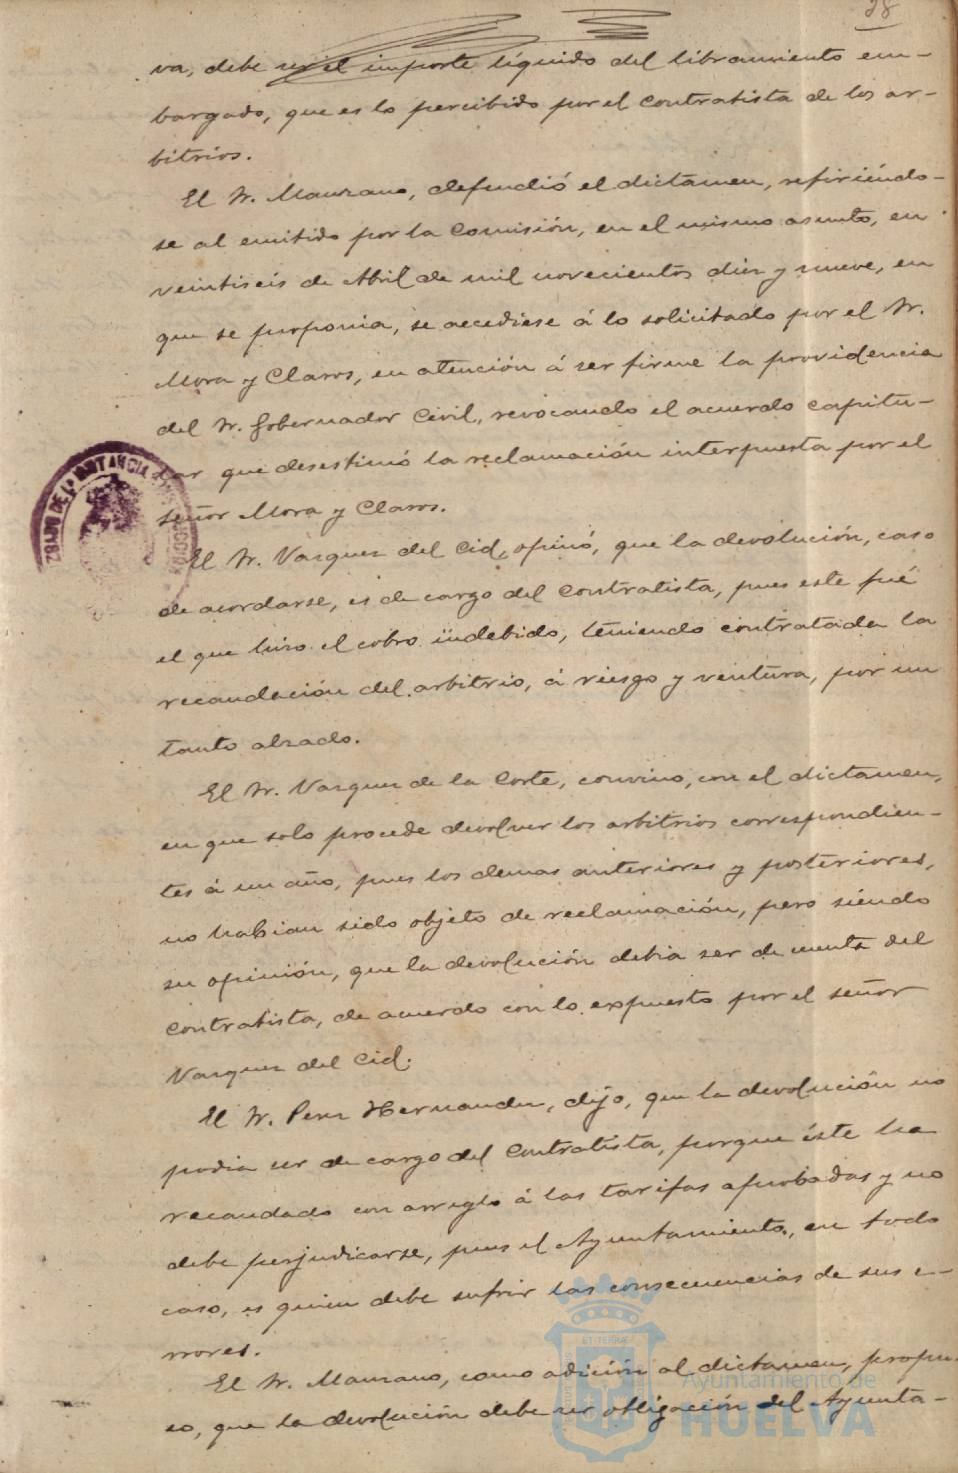 28
va, debe ser el importe líquido del libramiento em-
bargado, que es lo percibido por el contratista de los ar-
bitrios.
El Sr. Manzano, defendió el dictamen, refiriéndo-
se al emitido por la Comisión, en el mismo asunto, en
veintiseis de Abril de mil novecientos diez y nueve, en
que se proponia, se accediese á lo solicitado por el Sr.
Mora y Claros, en atención á ser firme la providencia
del Sr. Gobernador Civil, revocando el acuerdo capitu-
lar que desestimó la reclamación interpuesta por el
señor Mora y Claros.
El Sr. Vazquez del Cid, opinó, que la devolución, caso
de acordarse, es de cargo del contratista, pues este fué
el que hizo el cobro indebido, teniendo contratada la
recaudación del arbitrio, á riesgo y ventura, por un
tanto alzado.
El Sr. Vazquez de la Corte, convino, con el dictamen,
en que solo procede devolver los arbitrios correspondien-
tes á un año, pues los demas anteriores y posteriores,
no habian sido objeto de reclamación, pero siéndo
su opinión, que la devolución debia ser de cuenta del
contratista, de acuerdo con lo expuesto por el señor
Vazquez del Cid.
El Sr. Perez Hernandez, dijo, que la devolución no
podia ser de cargo del contratista, porque éste ha
recaudado con arreglo á las tarifas aprobadas y no
debe perjudicarse, pues el Ayuntamiento, en todo
caso, es quien debe sufrir las consecuencias de sus e-
rrores.
El Sr. Manzano, como adición al dictamen, propu-
so, que la devolución debe ser obligación del Ayunta-
Ayuntamiento de
HUELVA